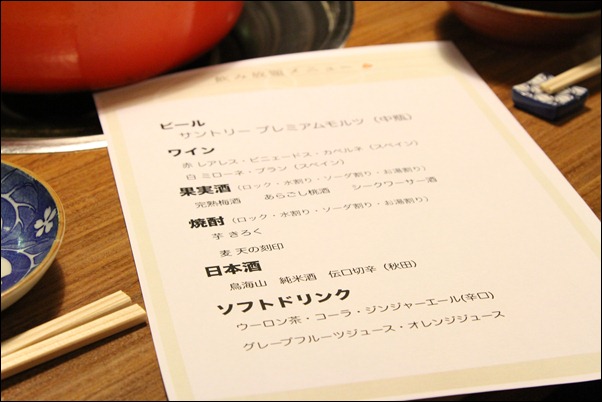 飲み放題メニュー
ビール
サントリー プレミアムモルツ（中瓶）
ワイン
赤 レアレス・ビニェードス・カベルネ（スペイン）
白 ミローネ・ブラン（スペイン）
果実酒（ロック・水割り・ソーダ割り・お湯割り）
完熟梅酒 あらごし桃酒 シークワーサー酒
焼酎（ロック・水割り・ソーダ割り・お湯割り）
芋 きろく
麦 天の刻印
日本酒
鳥海山 純米酒 伝口切辛（秋田）
ソフトドリンク
ウーロン茶・コーラ・ジンジャーエール(辛口)
グレープフルーツジュース・オレンジジュース